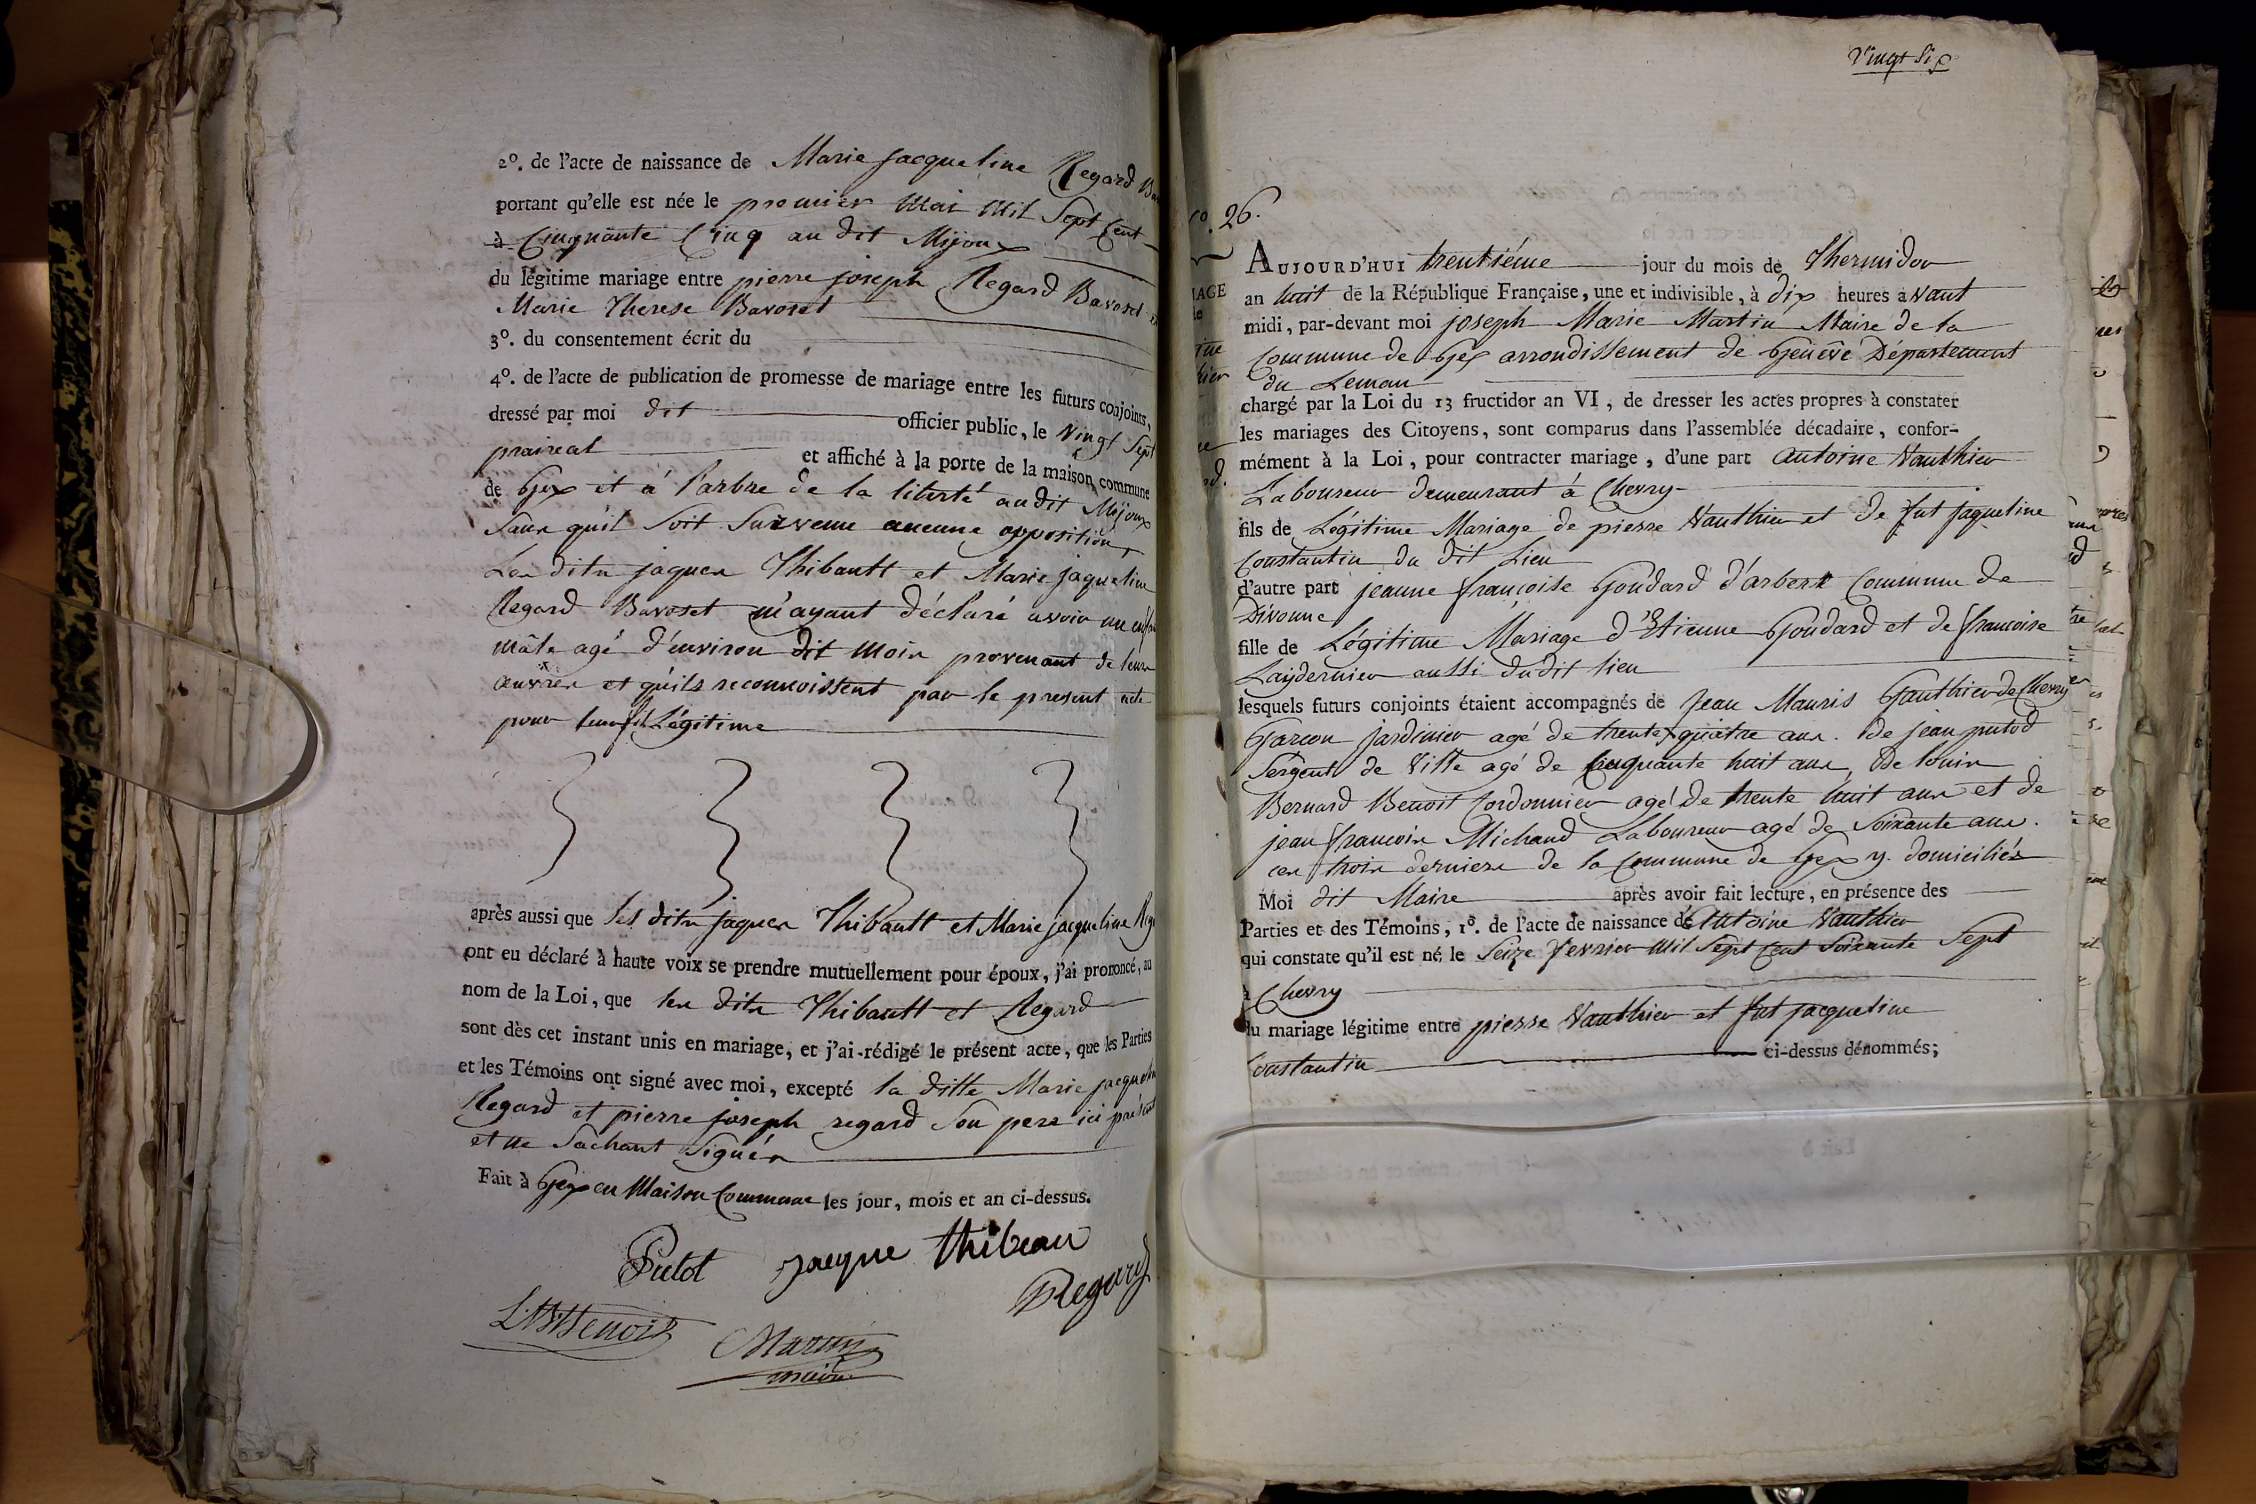 2º. de l'acte de naissance de Marie Jacqueline Regard
portant qu'elle est née le premier Mai Mil Sept Cent
à Cinquante Cinq au dit Mijoux
du légitime mariage entre pierre joseph Regard Bavoset et
Marie Therese Bavoset
3º. du consentement écrit du
4º. de l'acte de publication de promesse de mariage entre les futurs conjoints,
dressé par moi dit officier public, le Vingt Sept
praireal et affiché à la porte de la maison commune
de Gex et á l'arbre de la liberté au dit Mijoux
Sans qu'il Soit Survenu aucune opposition,
Les dits jaques Thibautt et Marie jaqueline
Regard Bavoset m'ayant déclaré avoir un enfan
mâle agé d'environ dit mois provenant de leurs
œuvres et quils reconnoissent par le present acte
pour leur fil Légitime
après aussi que les dits jaques Thibautt et Marie jacqueline Reg
ont eu déclaré à haute voix se prendre mutuellement pour époux, j'ai prononcé, au
nom de la Loi, que les dits Thibautt et Regard
sont dès cet instant unis en mariage, et j'ai rédigé le présent acte, que les Parties
et les Témoins ont signé avec moi, excepté la ditte Marie jacqueline
Regard et pierre joseph regard Son pere ici présent
et ne Sachant Signér
Fait à Gex en Maison Commune les jour, mois et an ci-dessus.
Putot Jacque thibeau
Regard
L. B. Benoit
Martin
maire
Vingt Six
º. 26.
IAGE
AUJOURD'HUI trentiéme jour du mois de Thermidor
an huit de la République Française, une et indivisible, à dix heures avant
midi, par-devant moi joseph Marie Martin Maire de la
Commune de Gex arrondissement de Genève Département
du Leman
chargé par la Loi du 13 fructidor an VI, de dresser les actes propres à constater
les mariages des Citoyens, sont comparus dans l'assemblée décadaire, confor-
mément à la Loi, pour contracter mariage, d'une part antoine Vauthier
Laboureur demeurant á Chevry
fils de Légitime Mariage de pierre Vauthier et de fut Jaqueline
Constantin du dit Lieu
d'autre part jeanne françoise Goudard d'arbere Commune de
Divonne
fille de Légitime Mariage d'Etienne Goudard et de francoise
Laydernier aussi dudit lieu
lesquels futurs conjoints étaient accompagnés de Jean Mauris Gauthier de Chevry
Garcon jardinier agé de trente quatre ans. De jean putod
Sergent de Ville agé de Cinquante huit ans, De louis
Bernard Benoit Cordonnier agé de trente huit ans et de
jean francois Michaud Laboureur agé de Soixante ans.
ces trois derniers de la Commune de Gex y. domiciliés
Moi dit Maire après avoir fait lecture, en présence des
Parties et des Témoins, 1º. de l'acte de naissance de Antoine Vauthier
qui constate qu'il est né le Seize fevrier Mil Sept Cent Soixante Sept
à Chevry
du mariage légitime entre pierre Vauthier et fut jacqueline
Constantin ci-dessus dénommés;